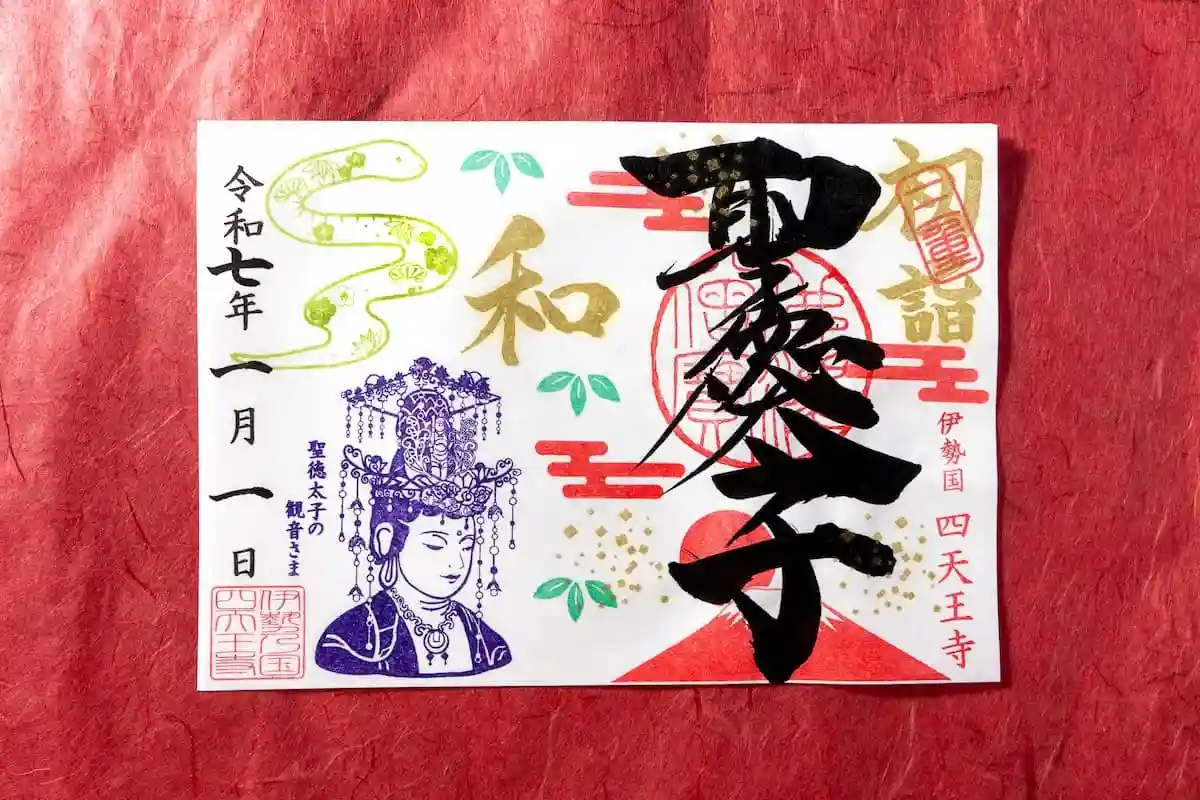 初詣
三重
伊勢国 四天王寺
聖徳太子
和
聖徳太子の
観音さま
令和七年一月一日
伊勢国
四天王寺